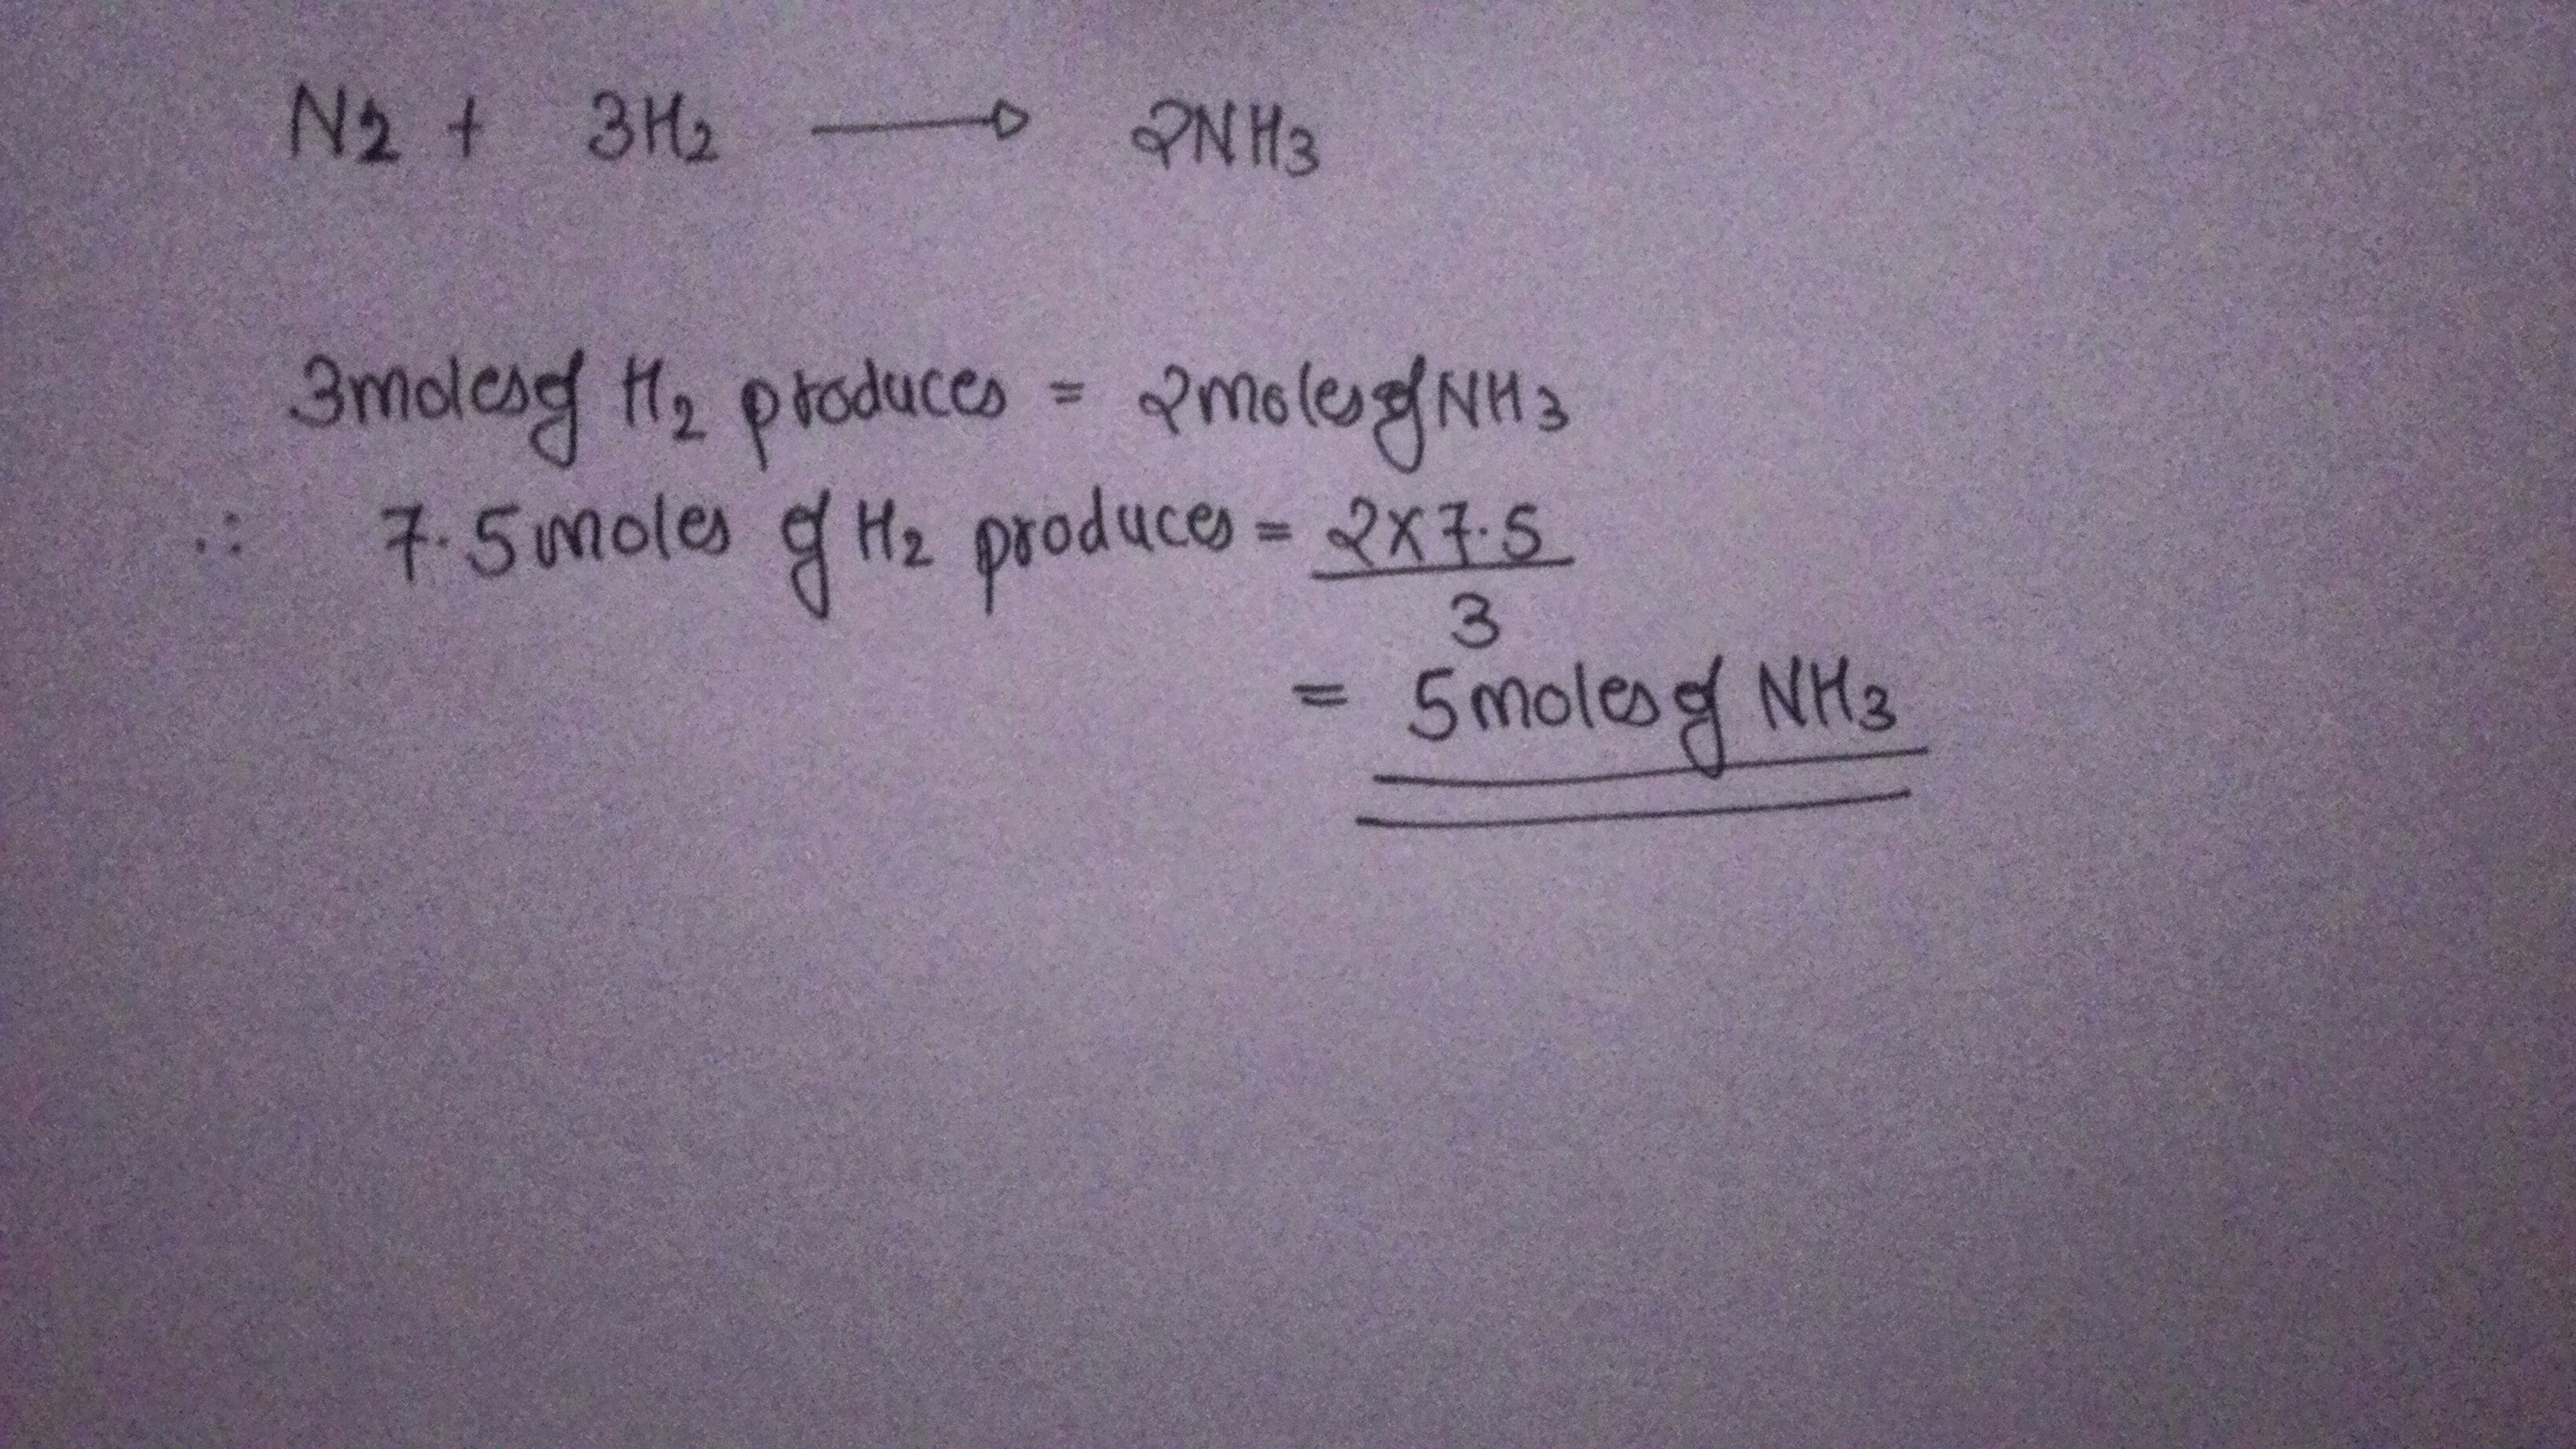 N2 + 3H2 → 2NH3
3moles of H2 produces = 2moles of NH3
∴ 7.5moles of H2 produces = 2×7.5
3
= 5moles of NH3